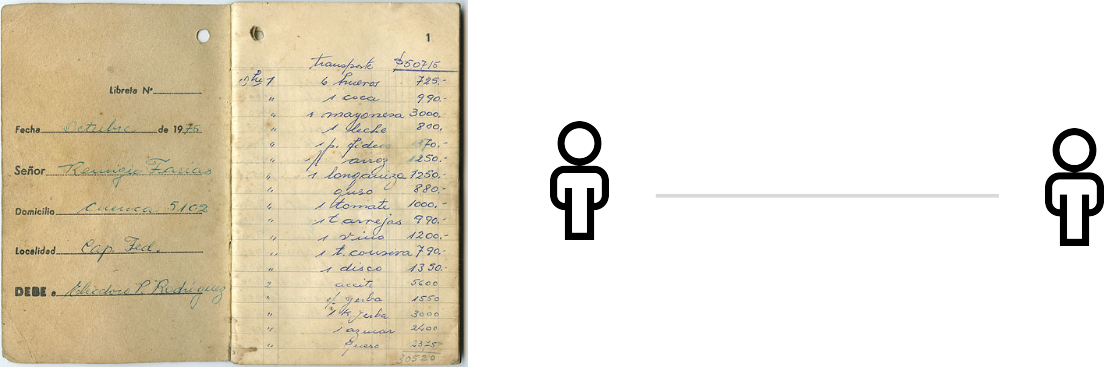 Libreta Nº
Fecha Octubre de 1975
Señor Remigio Farías
Domicilio Cuenca 5102
Localidad Cap. Fed.
DEBE a P. Rodriguez
1
transporte $50715
1 6 huevos 725.-
" 1 coca 990.-
" 1 mayonesa 3000.
" 1 leche 800.
" 1 p. fideos 170.-
" arroz 1250.-
" 1 longaniza 1250.-
" queso 880.-
" 1 tomate 1000.-
" 1 t arvejas 990.-
" 1 vino 1200.-
" 1 t. conserva 790.-
" 1 disco 1350.-
2 aceite 5600
" yerba 1550
" yerba 3000
" 1 azucar 2400
" Queso 2375.-
30520